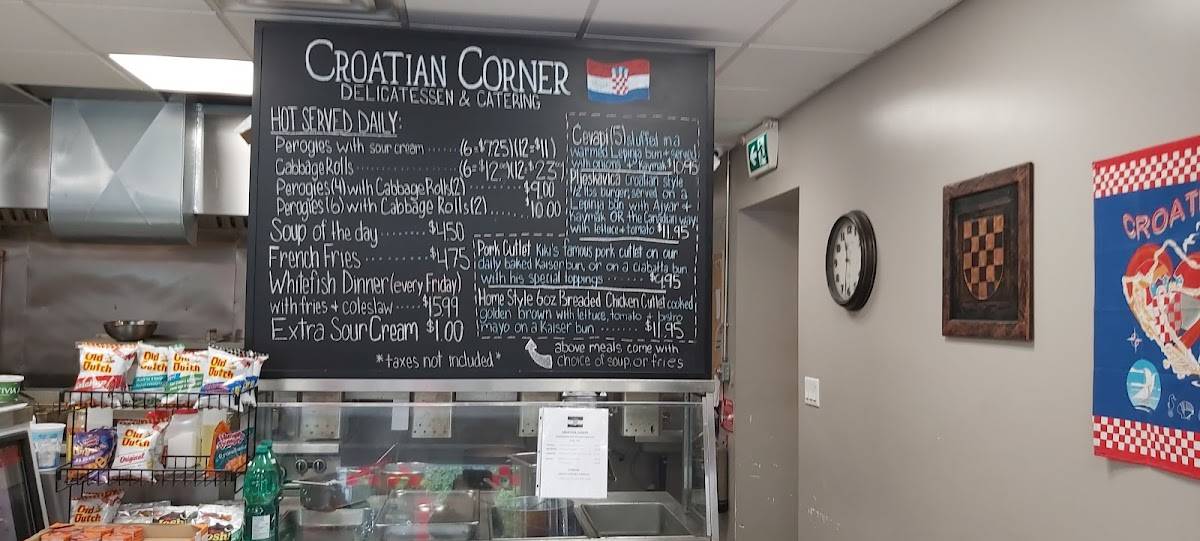 CROATIAN CORNER
DELICATESSEN & CATERING
HOT SERVED DAILY:
Perogies with sour cream ...... (6=$7.25)(12=$11)
Cabbage Rolls ...... (6=$12.00)(12=$23.00)
Perogies(4) with Cabbage Rolls(2) ...... $9.00
Perogies(6) with Cabbage Rolls(2) ...... $10.00
Soup of the day ...... $4.50
French Fries ...... $4.75
Whitefish Dinner (every Friday)
with fries + coleslaw ...... $15.99
Extra Sour Cream $1.00
*taxes not included*
Cevapi (5) stuffed in a
warmed Lepinja bun + served
with onions + Kaymak $10.95
Pljeskavica Croatian style
1/2 lbs burger, served on a
Lepinja bun with Ajvar +
kaymak OR the Canadian way
with lettuce + tomato $11.95
Pork Cutlet Kiki's famous pork cutlet on our
daily baked Kaiser bun, or on a ciabatta bun
with his special toppings ...... $9.95
Home Style 6oz Breaded Chicken Cutlet cooked
golden brown with lettuce, tomato + bistro
mayo on a Kaiser bun ...... $11.95
above meals come with
choice of soup, or fries
CROAT
Old Dutch
Old Dutch
Old Dutch
Old Dutch
Old Dutch
Original
Old Dutch